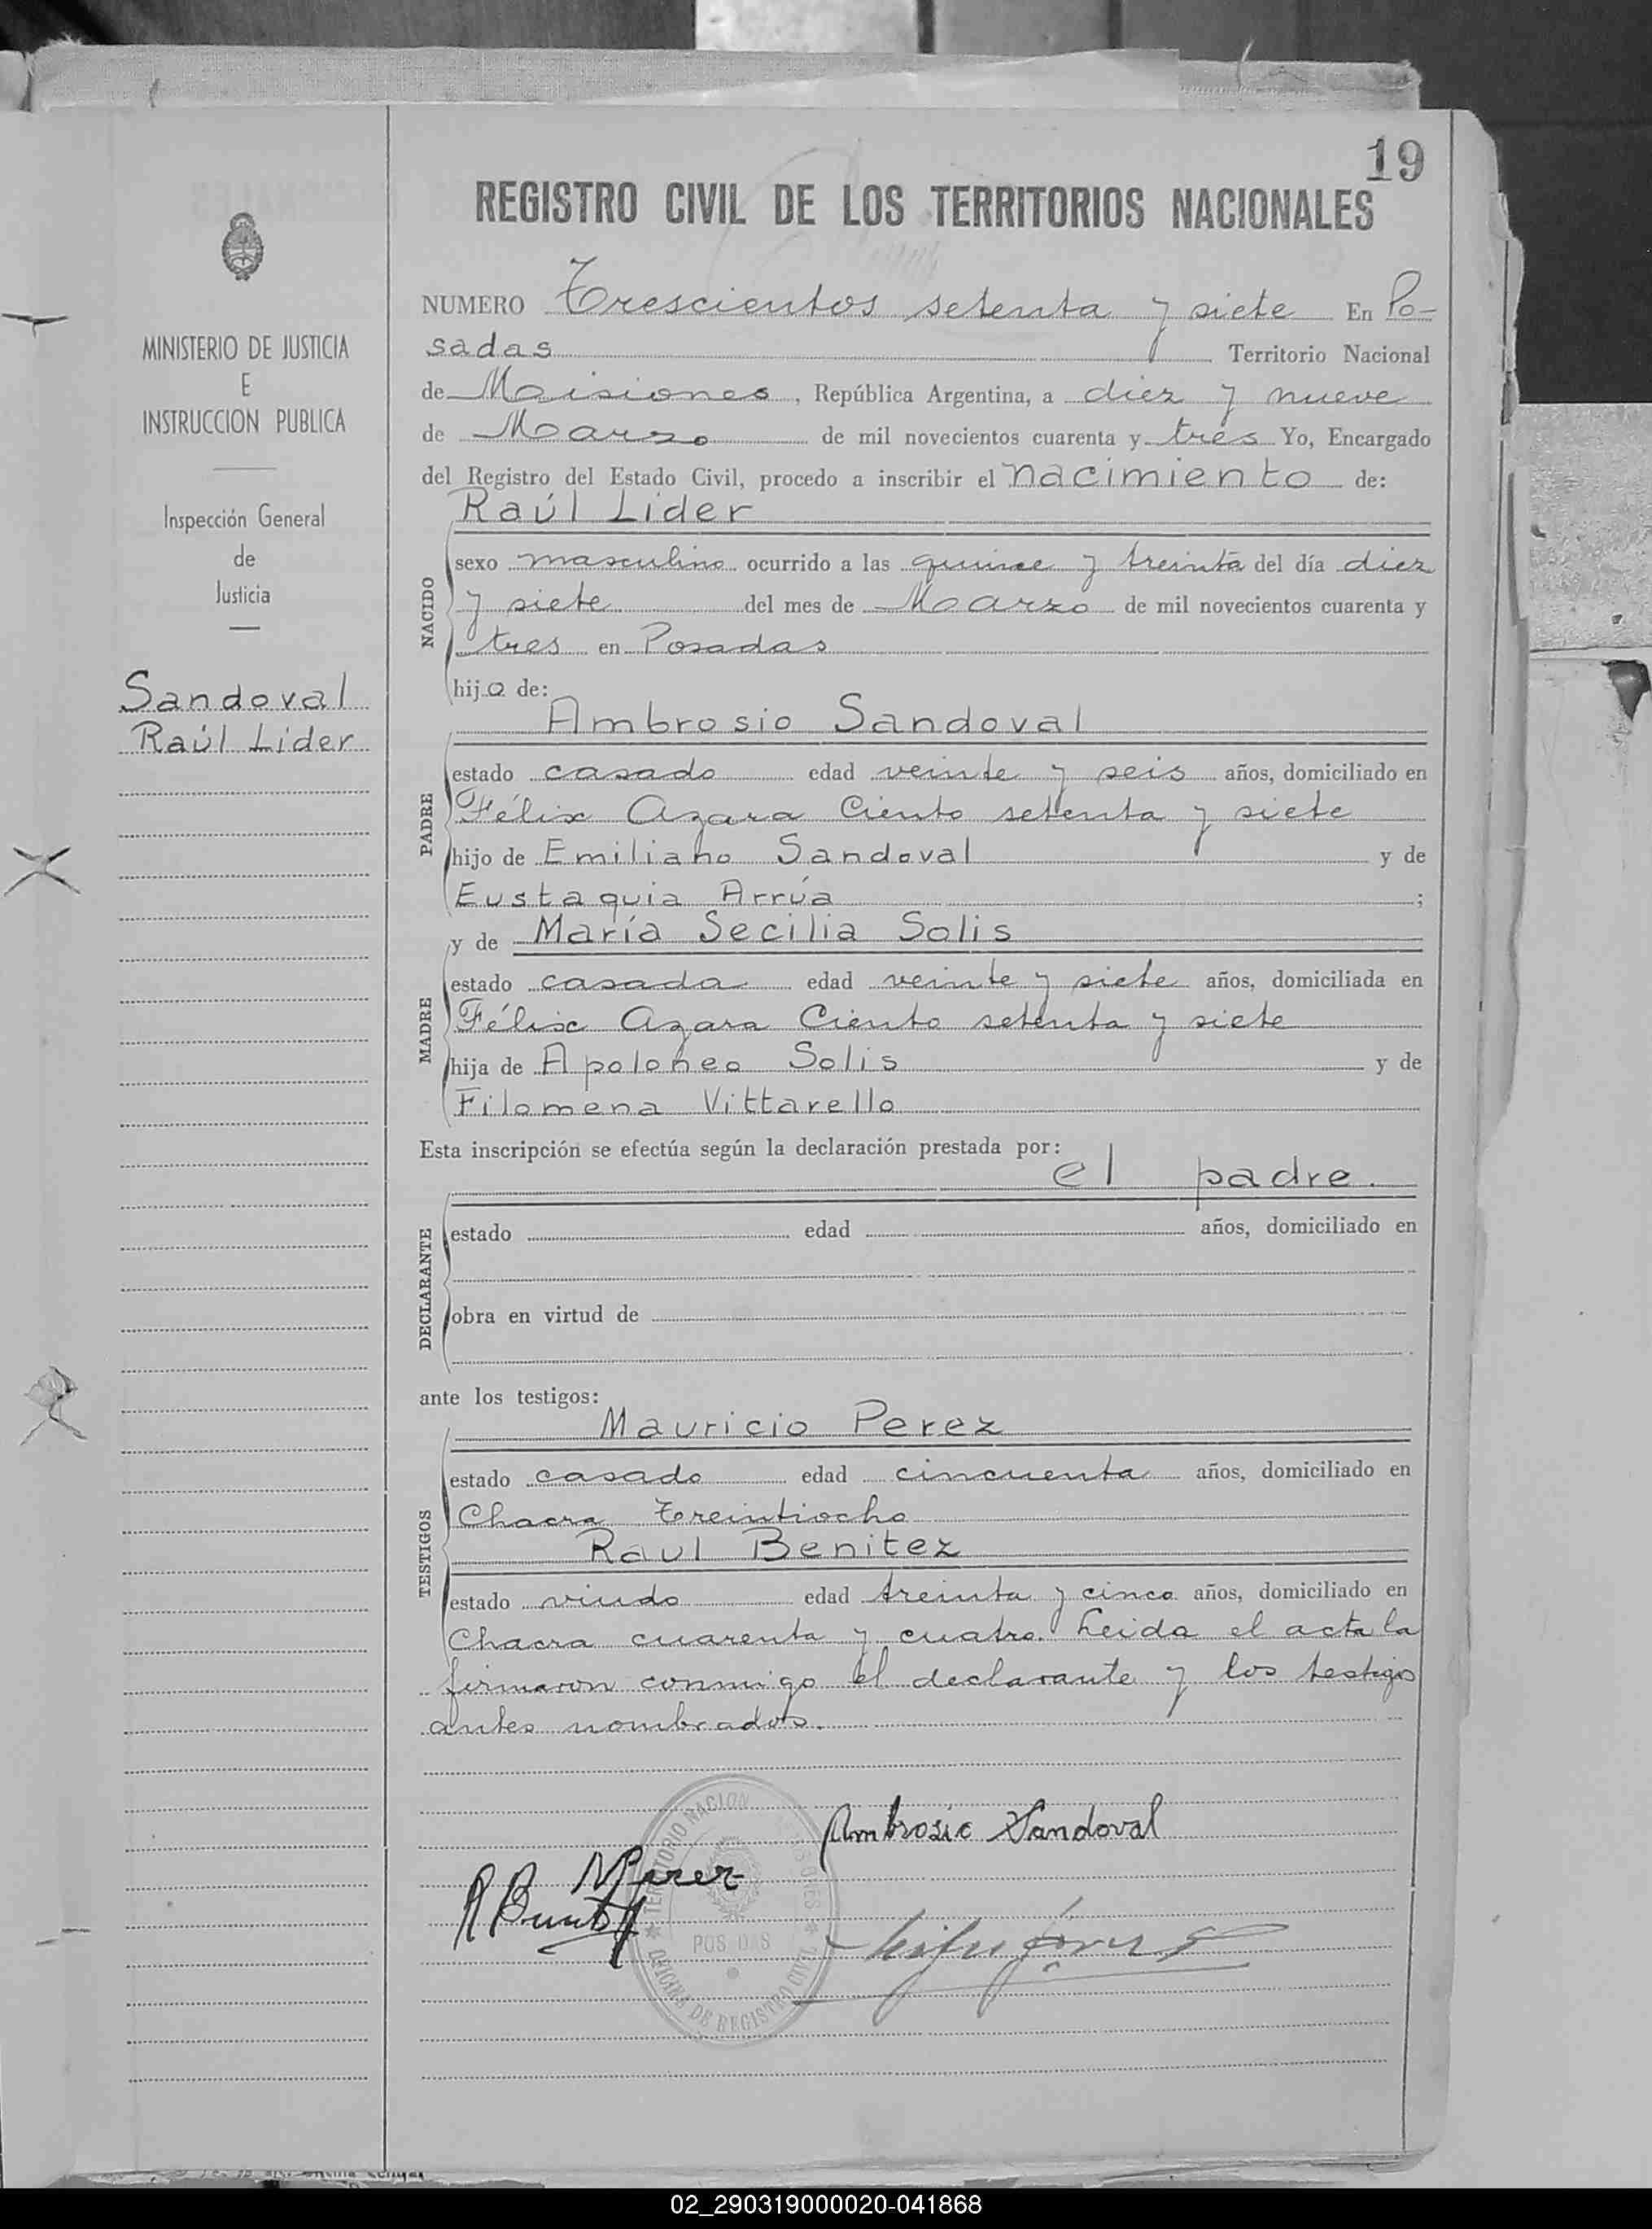 19
REGISTRO CIVIL DE LOS TERRITORIOS NACIONALES
MINISTERIO DE JUSTICIA
E
INSTRUCCION PUBLICA
Inspección General
de
Justicia
Sandoval
Raúl Lider
NUMERO Trescientos setenta y siete En Po-
sadas Territorio Nacional
de Misiones, República Argentina, a diez y nueve
de Marzo de mil novecientos cuarenta y tres Yo, Encargado
del Registro del Estado Civil, procedo a inscribir el nacimiento de:
Raúl Lider
NACIDO
sexo masculino ocurrido a las quince y treinta del día diez
y siete del mes de Marzo de mil novecientos cuarenta y
tres en Posadas
hijo de:
Ambrosio Sandoval
PADRE
estado casado edad veinte y seis años, domiciliado en
Félix Azara Ciento setenta y siete
hijo de Emiliano Sandoval y de
Eustaquia Arrúa ;
y de María Secilia Solis
MADRE
estado casada edad veinte y siete años, domiciliada en
Félix Azara Ciento setenta y siete
hija de Apoloneo Solis y de
Filomena Vittarello
Esta inscripción se efectúa según la declaración prestada por:
el padre.
DECLARANTE
estado edad años, domiciliado en
obra en virtud de
ante los testigos:
Mauricio Perez
TESTIGOS
estado casado edad cincuenta años, domiciliado en
Chacra Treintiocho
Raul Benitez
estado viudo edad treinta y cinco años, domiciliado en
Chacra cuarenta y cuatro. Leida el acta la
firmaron conmigo el declarante y los testigos
antes nombrados.
Ambrosio Sandoval
M Perez
R Benitez
TERRITORIO NACION
POSADAS
OFICINA DE REGISTRO CIVIL
02_290319000020-041868